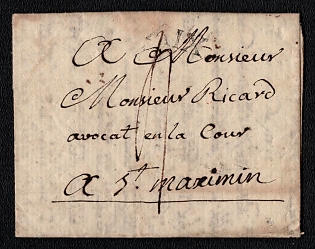 A Monsieur
Monsieur Ricard
avocat en la Cour
A St. maximin